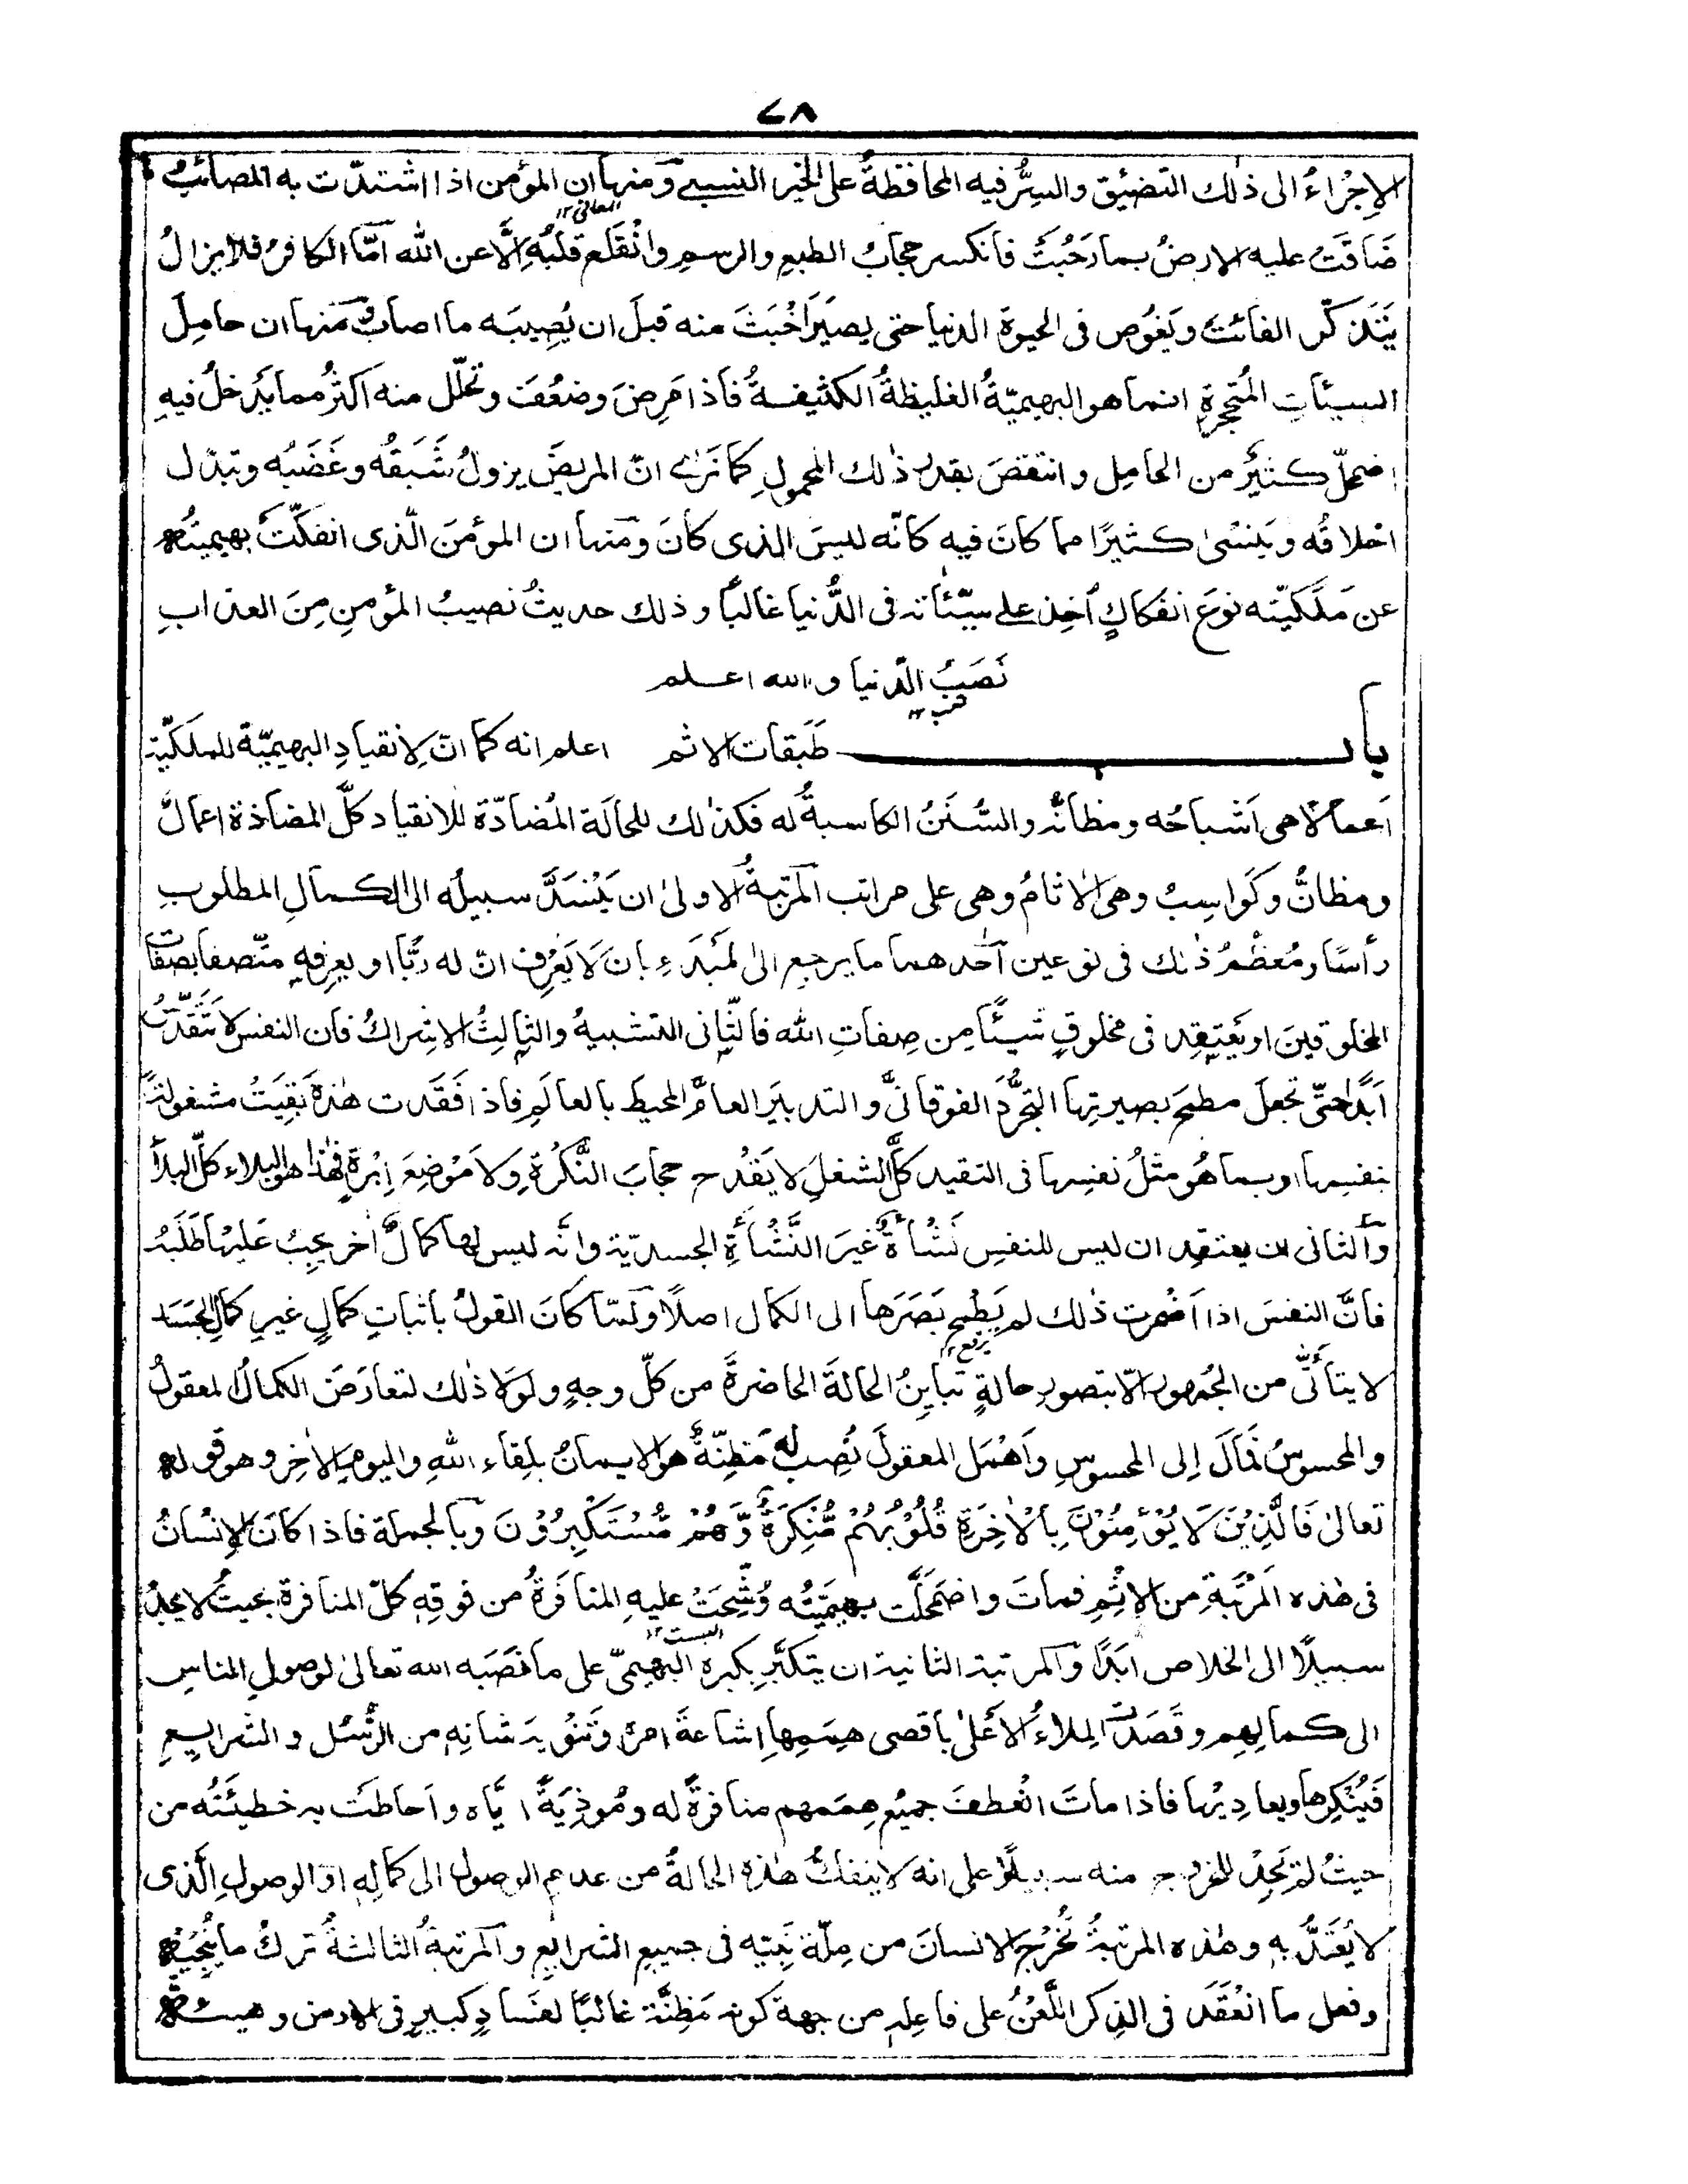 ٧٨
الاِجْزاءُ الى ذٰلك التضيّق والسِرُّ فيه المحافظةُ على الخير النسبے ومنها ان المؤمن اذا اشتدّت به المصائبُ
المعانى ١٢
ضَاقَتْ عليه الارضُ بما رَحُبَتْ فانكسر حجابُ الطبعِ والرسمِ وانْقَلَع قلبُه اِلَّا عن الله امّا الكافرُ فلا يزالُ
يَتَذكّر الفائتَ ويَغُوص فى الحيوة الدنيا حتى يصيرَ اَخْبَثَ منه قبلَ ان يُصِيبَه ما اصاب ومنها ان حامِلَ
السيئاتِ المُتَحجّرةِ انما هو البهيميّةُ الغليظةُ الكثيفةُ فاذا مَرِضَ وضعُفَ وتحلّل منه اكثرُ مما يَدخلُ فيهِ
اضمحلّ كثيرٌ من الحامِل وانتقصَ بقدر ذٰلك المحمولِ كما نَرٰے انّ المريضَ يزولُ شَبَقُه وغَضَبُه وتبدّل
اخلاقُه ويَنسٰى كثيرًا مما كانَ فيه كانّه ليسَ الذى كانَ ومنها ان المؤمنَ الّذى انفكّتْ بهيميتُه
عن مَلَكيّته نوعَ انفكاكٍ اُخِذ علے سيّئاته فى الدُّنيا غالبًا وذلك حديثُ نصيبُ المؤمنِ مِنَ العذابِ
نَصَبُ الدّنيا والله اعلم
تعب ١٢
بابـــ طَبَقات الاثم اعلم انه كما انّ لِانقيادِ البهيميّة للملكيّة
اَعمالًا هى اَشباحُه ومظانُّه والسُّنَنُ الكاسبةُ له فكذٰلك للحالَة المُضادّة للانقياد كلَّ المضادّة اعمالٌ
ومظانٌّ وكَواسِبُ وهى الاٰثامُ وهى على مراتب المرتبةُ الاولىٰ ان يَنْسَدَّ سبيلُه الى الكمالِ المطلوبِ
رأسًا ومُعظَمُ ذٰلك فى نوعين اَحدهما ما يرجع الىٰ المَبْدَءِ بان لَا يَعْرِف انّ له ربًّا او يعرِفه متّصفا بصفات
المخلوقينَ او يَعتقِد فى مخلوقٍ شيئًا مِن صِفاتِ الله فالثّانى التشبيهُ والثالثُ الاشراكُ فان النفسَ لا تتقدّسُ
اَبَدًا حتّٰى تجعلَ مطمحَ بصيرتِها التجرُّدَ الفوقانىَّ والتدبيرَ العامَّ المحيطَ بالعالَمِ فاذا فَقَدت هٰذه بَقِيَتْ مشغولةً
بنفسِها او بما هُو مثلُ نفسِها فى التقيد كلَّ الشغلِ لا يَقْدَح حجابَ النُّكْرَةِ ولا مَوْضِعَ اِبْرَةٍ فهٰذا هو البلاء كلّ البلاء
والثانى ان يعتقد ان ليس للنفسِ نَشْأةٌ غيرَ النَّشْأةِ الجسديّة وانّه ليس لها كمالٌ اٰخر يجبُ عَليها طَلَبُه
فانَّ النفسَ اذا اَضْمرت ذٰلك لم يَطمح بَصَرَها الى الكمال اصلًا ولمّا كانَ القولُ باثباتِ كمالٍ غيرِ كمالِ الجَسَد
يرتفع ١٢
لا يتأتّٰى من الجُمهور الّا بتصورِ حالةٍ تبايِنُ الحالةَ الحاضرةَ من كلّ وجهٍ ولولا ذٰلك لتعارَضَ الكمالُ المعقولُ
والمحسوسُ فمَالَ اِلى المحسوسِ واَهْمَل المعقولَ نُصِبَ له مَظِنّةٌ هو الايمانُ بلِقاءِ اللهِ واليومِ الاٰخرِ وهو قوله
تعالىٰ فَالَّذِيْنَ لَا يُؤْمِنُوْنَ بِالْاٰخِرَةِ قُلُوْبُهُمْ مُّنْكِرَةٌ وَّهُمْ مُّسْتَكْبِرُوْنَ وبالجملة فاذا كانَ الاِنْسَانُ
فى هٰذه المرْتَبةِ من الاِثْمِ فماتَ واضمَحَلَّت بهيميّتُه وُشِّحَتْ عليهِ المنافَرةُ من فوقِه كلَّ المنافرة بحيثُ لا يجدُ
البست ١٢
سبيلًا الى الخلاص ابَدًا والمرتبة الثانية ان يتكبّر بِكبره البهيمىّ على ما نَصَبَه الله تعالىٰ لوصولِ الناسِ
الى كمالِهم وقَصَدَتِ المَلاءُ الاَعْلىٰ باَقصى هِمَمِها اِشاعةَ امرِه وتَنْوِيهَ شانِه من الرُّسُل والشرايعِ
فَيُنْكِرها ويعادِيْها فاذا ماتَ انْعطفَ جميعُ هِمَمهم منافرةً له ومُوذِيَةً ايّاه واَحاطَتْ به خطيئَتُه من
حيثُ لم يَجِدْ للخروج منه سبيلًا على انه لا ينفكُّ هٰذه الحالةُ من عدمِ الوصول الى كمالِه او الوصولِ الّذى
لا يُعْتَدُّ به وهٰذه المرتبةُ تُخْرِجُ الانسانَ من مِلّة نَبِيّه فى جميع الشرايعِ والمرتبةُ الثالثةُ تركُ ما يُنْجِيْه
وفعل ما انْعَقَدَ فى الذِكر اللَّعْنُ على فاعِلِه من جهة كونه مَظِنّة غالبًا لفسادٍ كبيرٍ فى الارض وهيئة